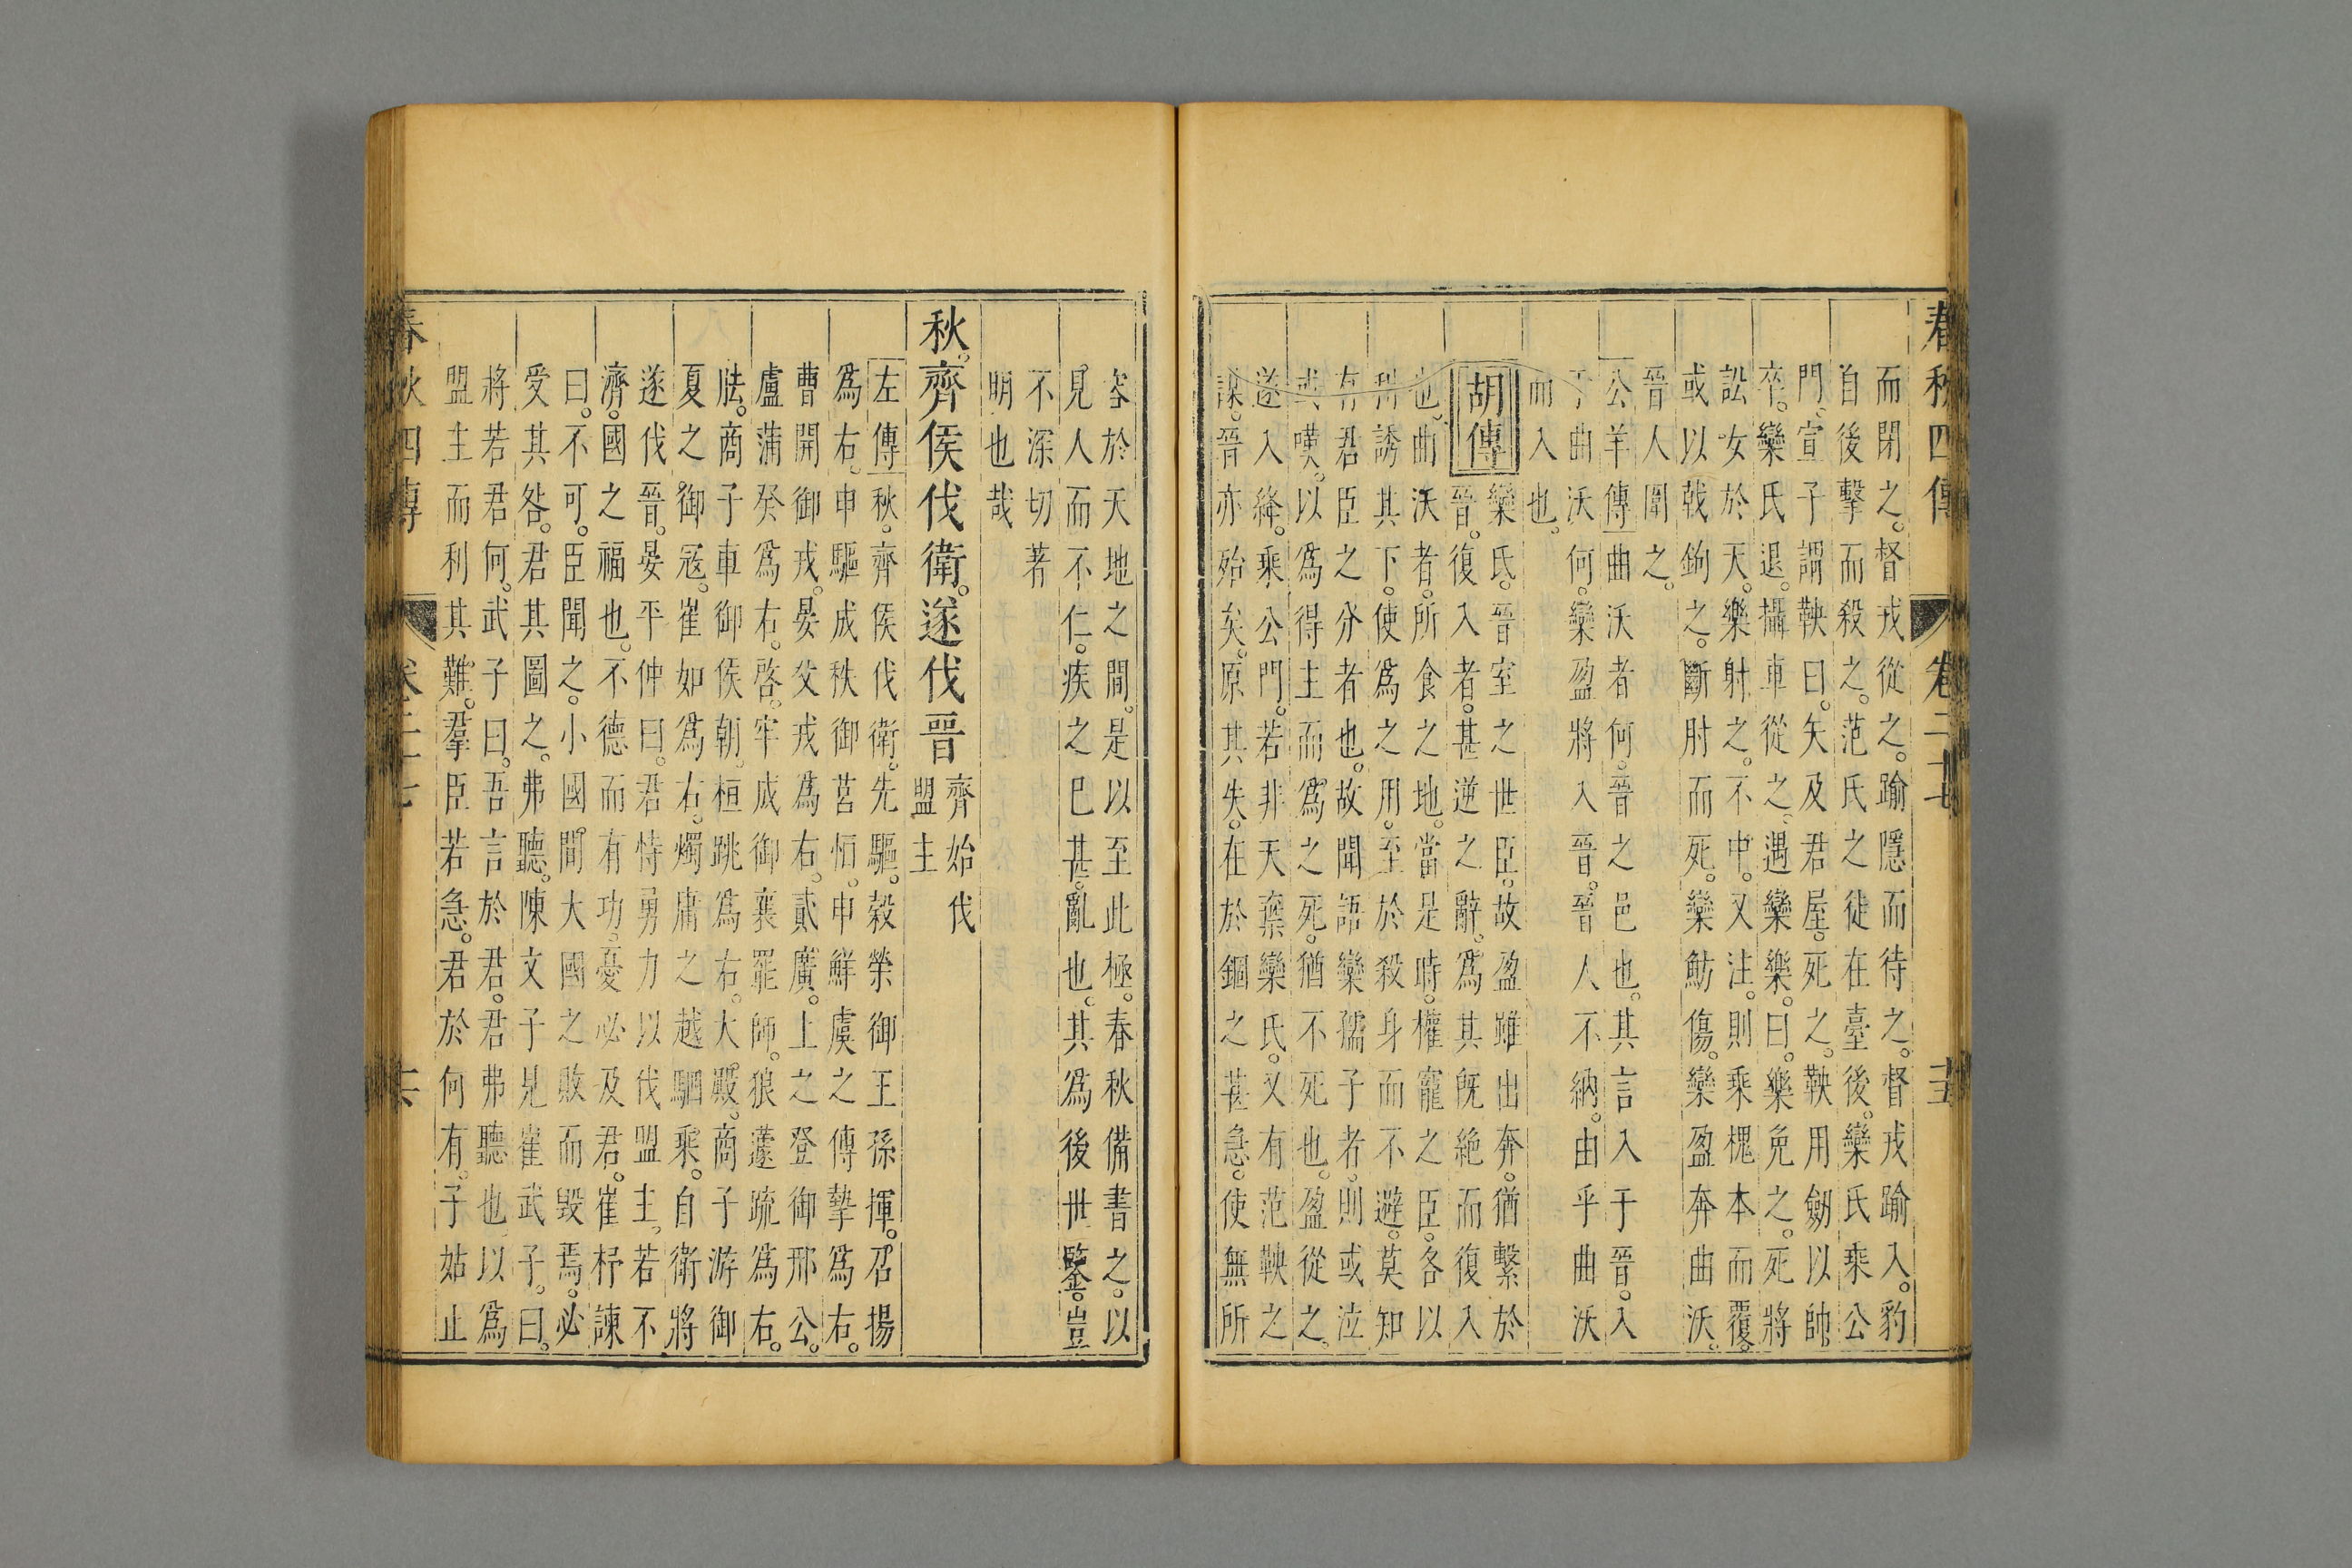 春秋四傳 卷二十七
而閉之。督戎從之。踰隱而待之。督戎踰入。豹
自後擊而殺之。范氏之徒在臺後。欒氏乘公
門。宣子謂鞅曰。矢及君屋。死之。鞅用劒以帥
卒。欒氏退。攝車從之。遇欒樂。曰。樂免之。死將
訟女於天。樂射之。不中。又注。則乘槐本而覆。
或以戟鉤之。斷肘而死。欒魴傷。欒盈奔曲沃。
晉人圍之。
公羊傳 曲沃者何。晉之邑也。其言入于晉。入
于曲沃何。欒盈將入晉。晉人不納。由乎曲沃
而入也。
胡傳 欒氏。晉室之世臣。故盈雖出奔。猶繫於
晉。復入者。甚逆之辭。爲其旣絶而復入
也。曲沃者。所食之地。當是時。權寵之臣。各以
利誘其下。使爲之用。至於殺身而不避。莫知
有君臣之分者也。故聞語欒孺子者。則或泣
或嘆。以爲得主而爲之死。猶不死也。盈從之。
遂入絳。乘公門。若非天棄欒氏。又有范鞅之
謀。晉亦殆矣。原其失。在於錮之甚急。使無所
容於天地之間。是以至此極。春秋備書之。以
見人而不仁。疾之已甚。亂也。其爲後世鑒。豈
不深切著
明也哉
秋。齊侯伐衛。遂伐晉 齊始伐
盟主
左傳 秋。齊侯伐衛。先驅。穀榮御王孫揮。召揚
爲右。申驅。成秩御莒恒。申鮮虞之傅摯爲右。
曹開御戎。晏父戎爲右。貳廣。上之登御邢公。
盧蒲癸爲右。啓。牢成御襄罷師。狼蘧疏爲右。
胠。商子車御侯朝。桓跳爲右。大殿。商子游御
夏之御寇。崔如爲右。燭庸之越駟乘。自衛將
遂伐晉。晏平仲曰。君恃勇力以伐盟主。若不
濟。國之福也。不德而有功。憂必及君。崔杼諫
曰。不可。臣聞之。小國間大國之敗而毀焉。必
受其咎。君其圖之。弗聽。陳文子見崔武子。曰。
將若君何。武子曰。吾言於君。君弗聽也。以爲
盟主而利其難。羣臣若急。君於何有。子姑止
春秋四傳